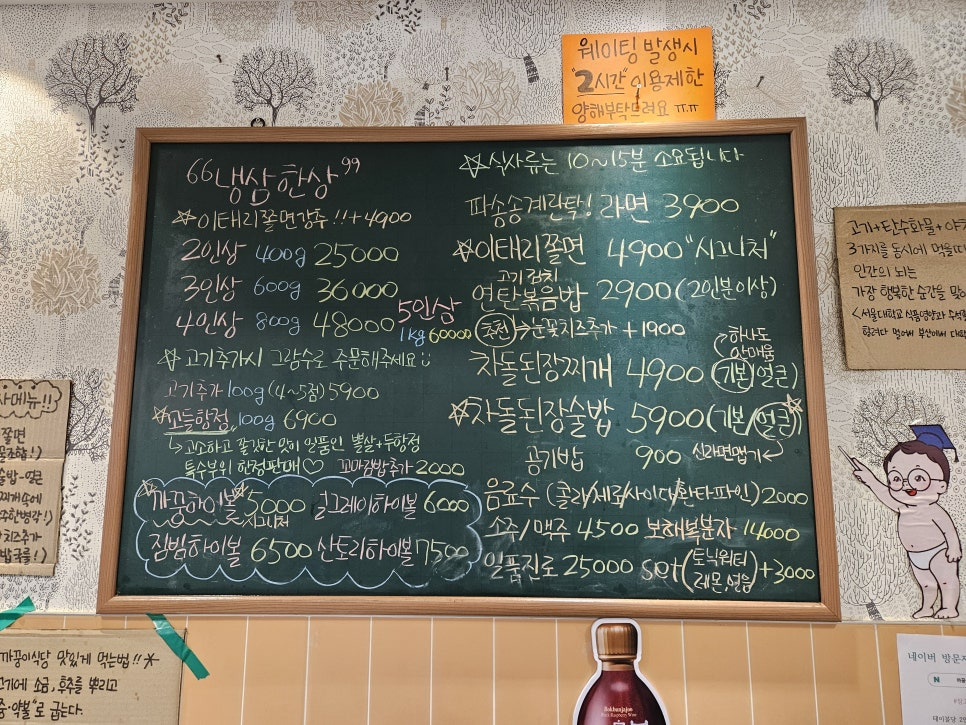 웨이팅 발생시
"2시간" 이용제한
양해부탁드려요 ㅠ.ㅠ
“냉삼한상”
☆이태리쫄면강추!!+4900
2인상 400g 25000
3인상 600g 36000
4인상 800g 48000
5인상
1kg 60000
☆ 고기추가시 그람수로 주문해주세요
고기추가 100g (4~5점) 5900
☆고들항정 100g 6900
↳ 고소하고 쫄깃한 맛이 일품인 뽈살+두항정
특수부위 한정판매♡ 꼬마김밥추가 2000
까꿍하이볼 5000 얼그레이하이볼 6000
시그니처
짐빔하이볼 6500 산토리하이볼 7500
☆식사류는 10~15분 소요됩니다
파송송계란탁! 라면 3900
☆이태리쫄면 4900 "시그니처"
고기김치
연탄볶음밥 2900 (2인분이상)
추천 → 눈꽃치즈추가 +1900
하나도
안매움
차돌된장찌개 4900 (기본/얼큰)
☆차돌된장술밥 5900 (기본/얼큰)
공기밥 900 신라면맵기
음료수 (콜라/제로/사이다/환타파인) 2000
소주/맥주 4500 보해복분자 14000
일품진로 25000 set (토닉워터 레몬,얼음) +3000
고기+단수화물+야
3가지를 동시에 먹을때
인간의 뇌는
가장 행복한 순간을 맞
<서울대학교 식품영양과 수석
사메뉴!!
쫄면
꿀조합!)
술밥-얼큰
찌개속에
치즈추가
밥국룰!)
까꿍이식당 맛있게 먹는법!!
고기에 소금, 후추를 뿌리고
굽는다.
Bokbunjajoo
네이버 방문자
N